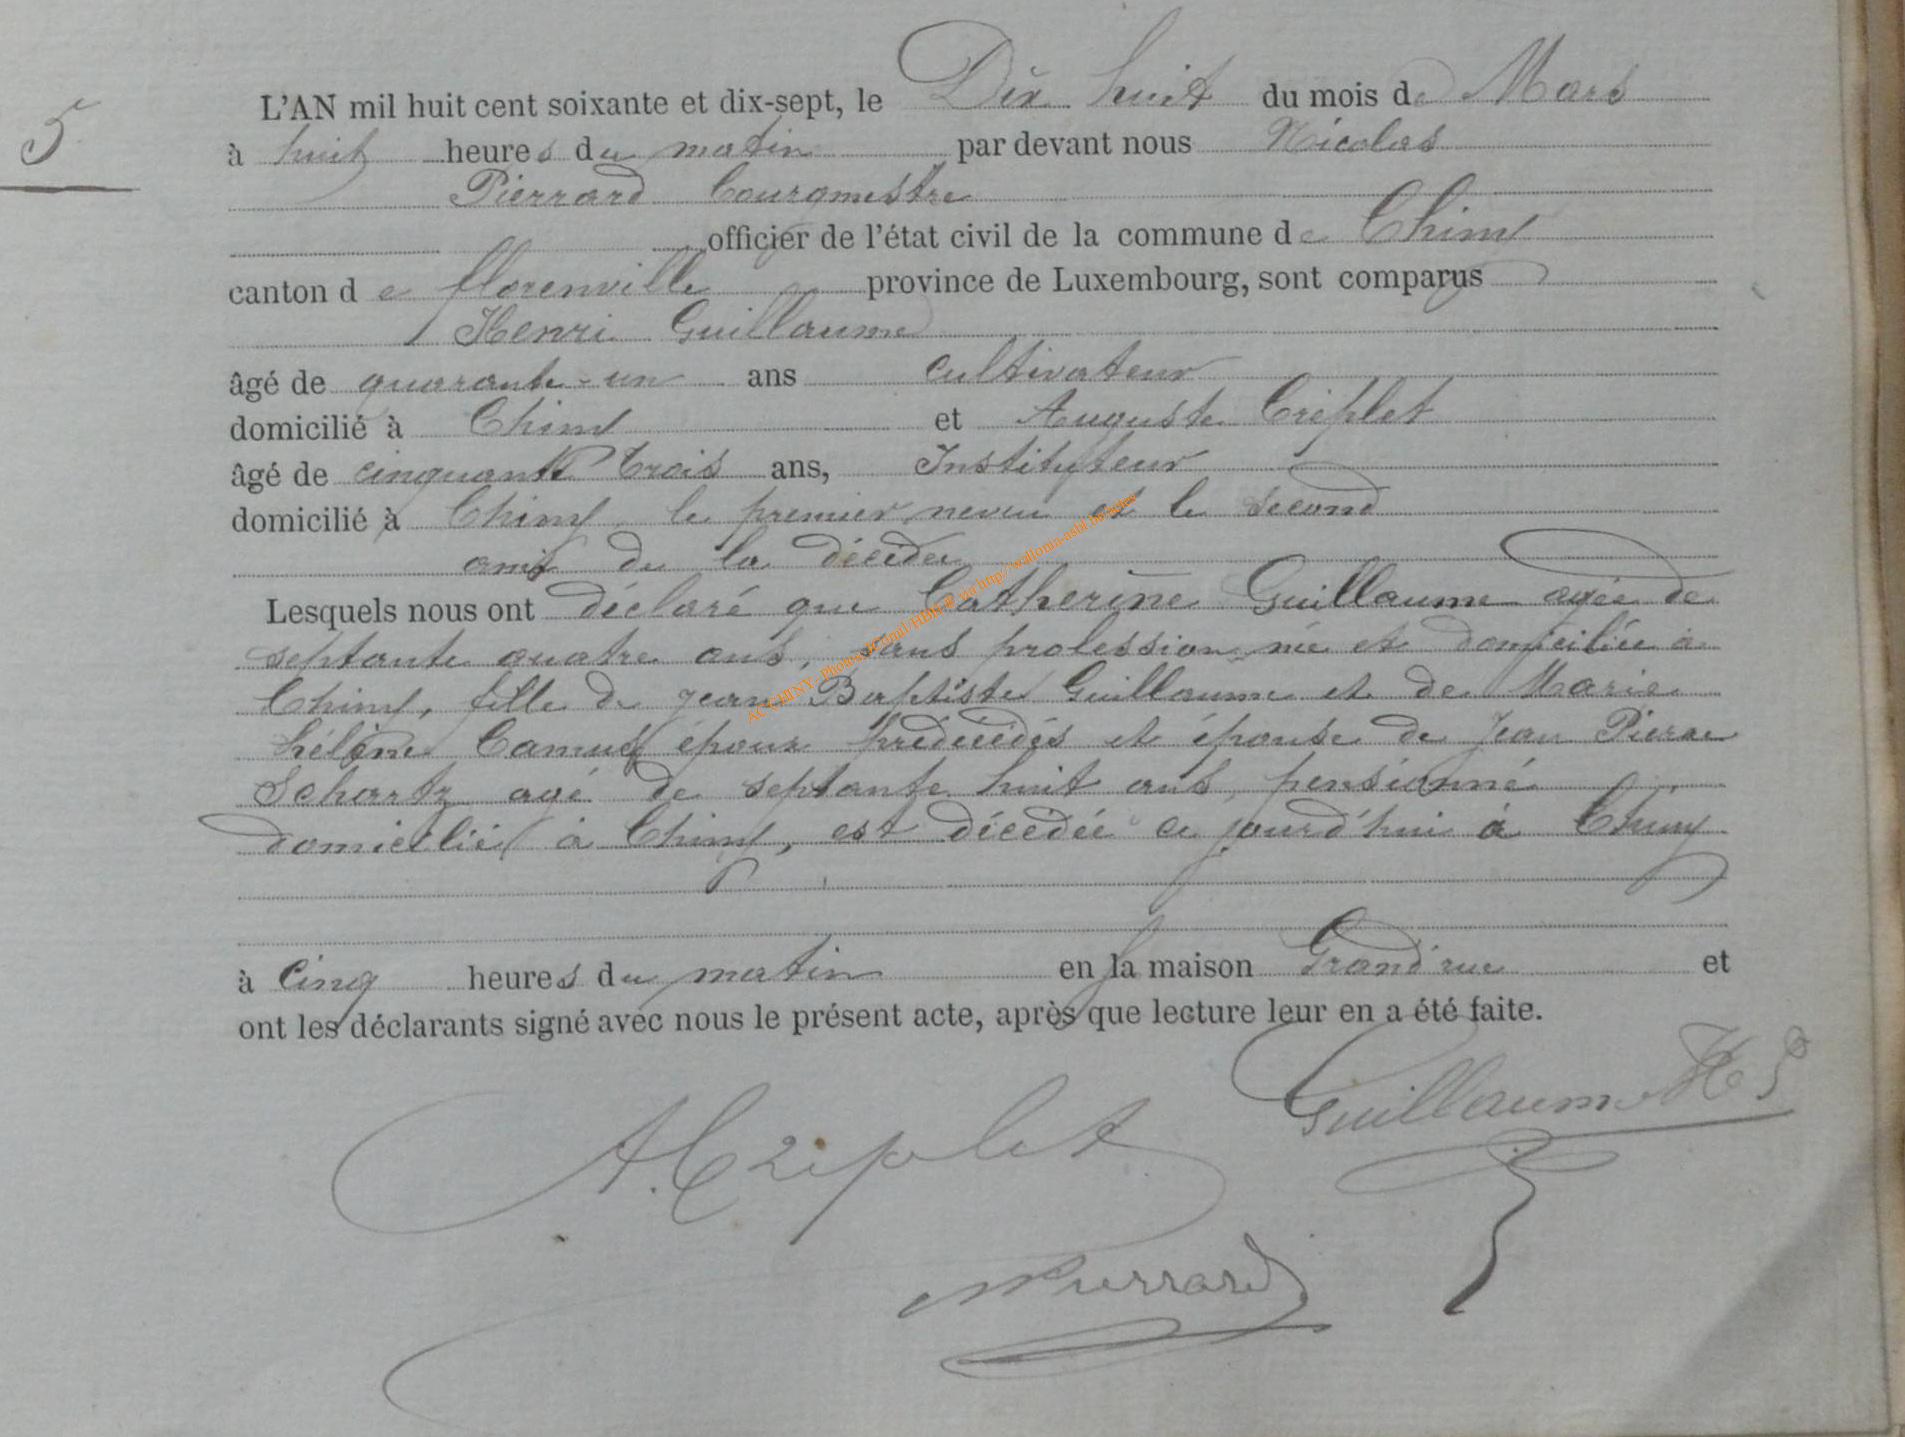 5
L'AN mil huit cent soixante et dix-sept, le Dix huit du mois de Mars
à huit heures du matin par devant nous Nicolas
Pierrard bourgmestre
officier de l'état civil de la commune de Chiny
canton de florenville province de Luxembourg, sont comparus
Henri Guillaume
âgé de quarante-un ans cultivateur
domicilié à Chiny et Auguste Créplet
âgé de cinquante trois ans, Instituteur
domicilié à Chiny, le premier neveu et le second
ami de la décédée
Lesquels nous ont déclaré que Catherine Guillaume agée de
septante quatre ans, sans profession née et domiciliée à
Chiny, fille de jean Baptiste Guillaume et de Marie
hélène Camus époux prédécédés et épouse de Jean Pierre
Schartz agé de septante huit ans, pensionné
domicilié à Chiny, est décédée ce jourd'hui à Chiny
à cinq heures du matin en la maison Grand'rue et
ont les déclarants signé avec nous le présent acte, après que lecture leur en a été faite.
Guillaume H
A. Créplet
Pierrard